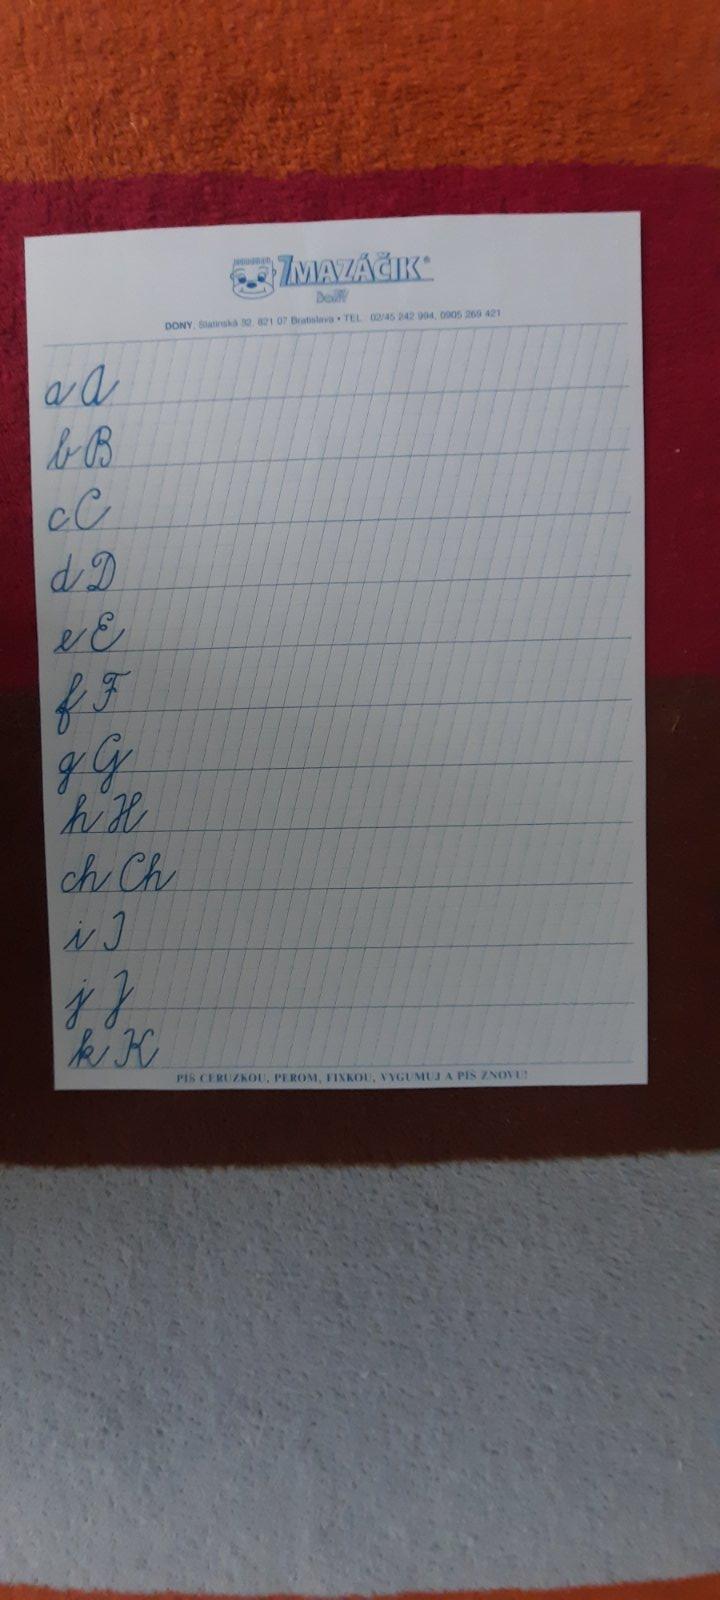 ZMAZÁČIK®
DONY
DONY, Slatinská 32, 821 07 Bratislava • TEL.: 02/45 242 994, 0905 269 421
a A
b B
c C
d D
e E
f F
g G
h H
ch Ch
i I
j J
k K
PÍŠ CERUZKOU, PEROM, FIXKOU, VYGUMUJ A PÍŠ ZNOVU!